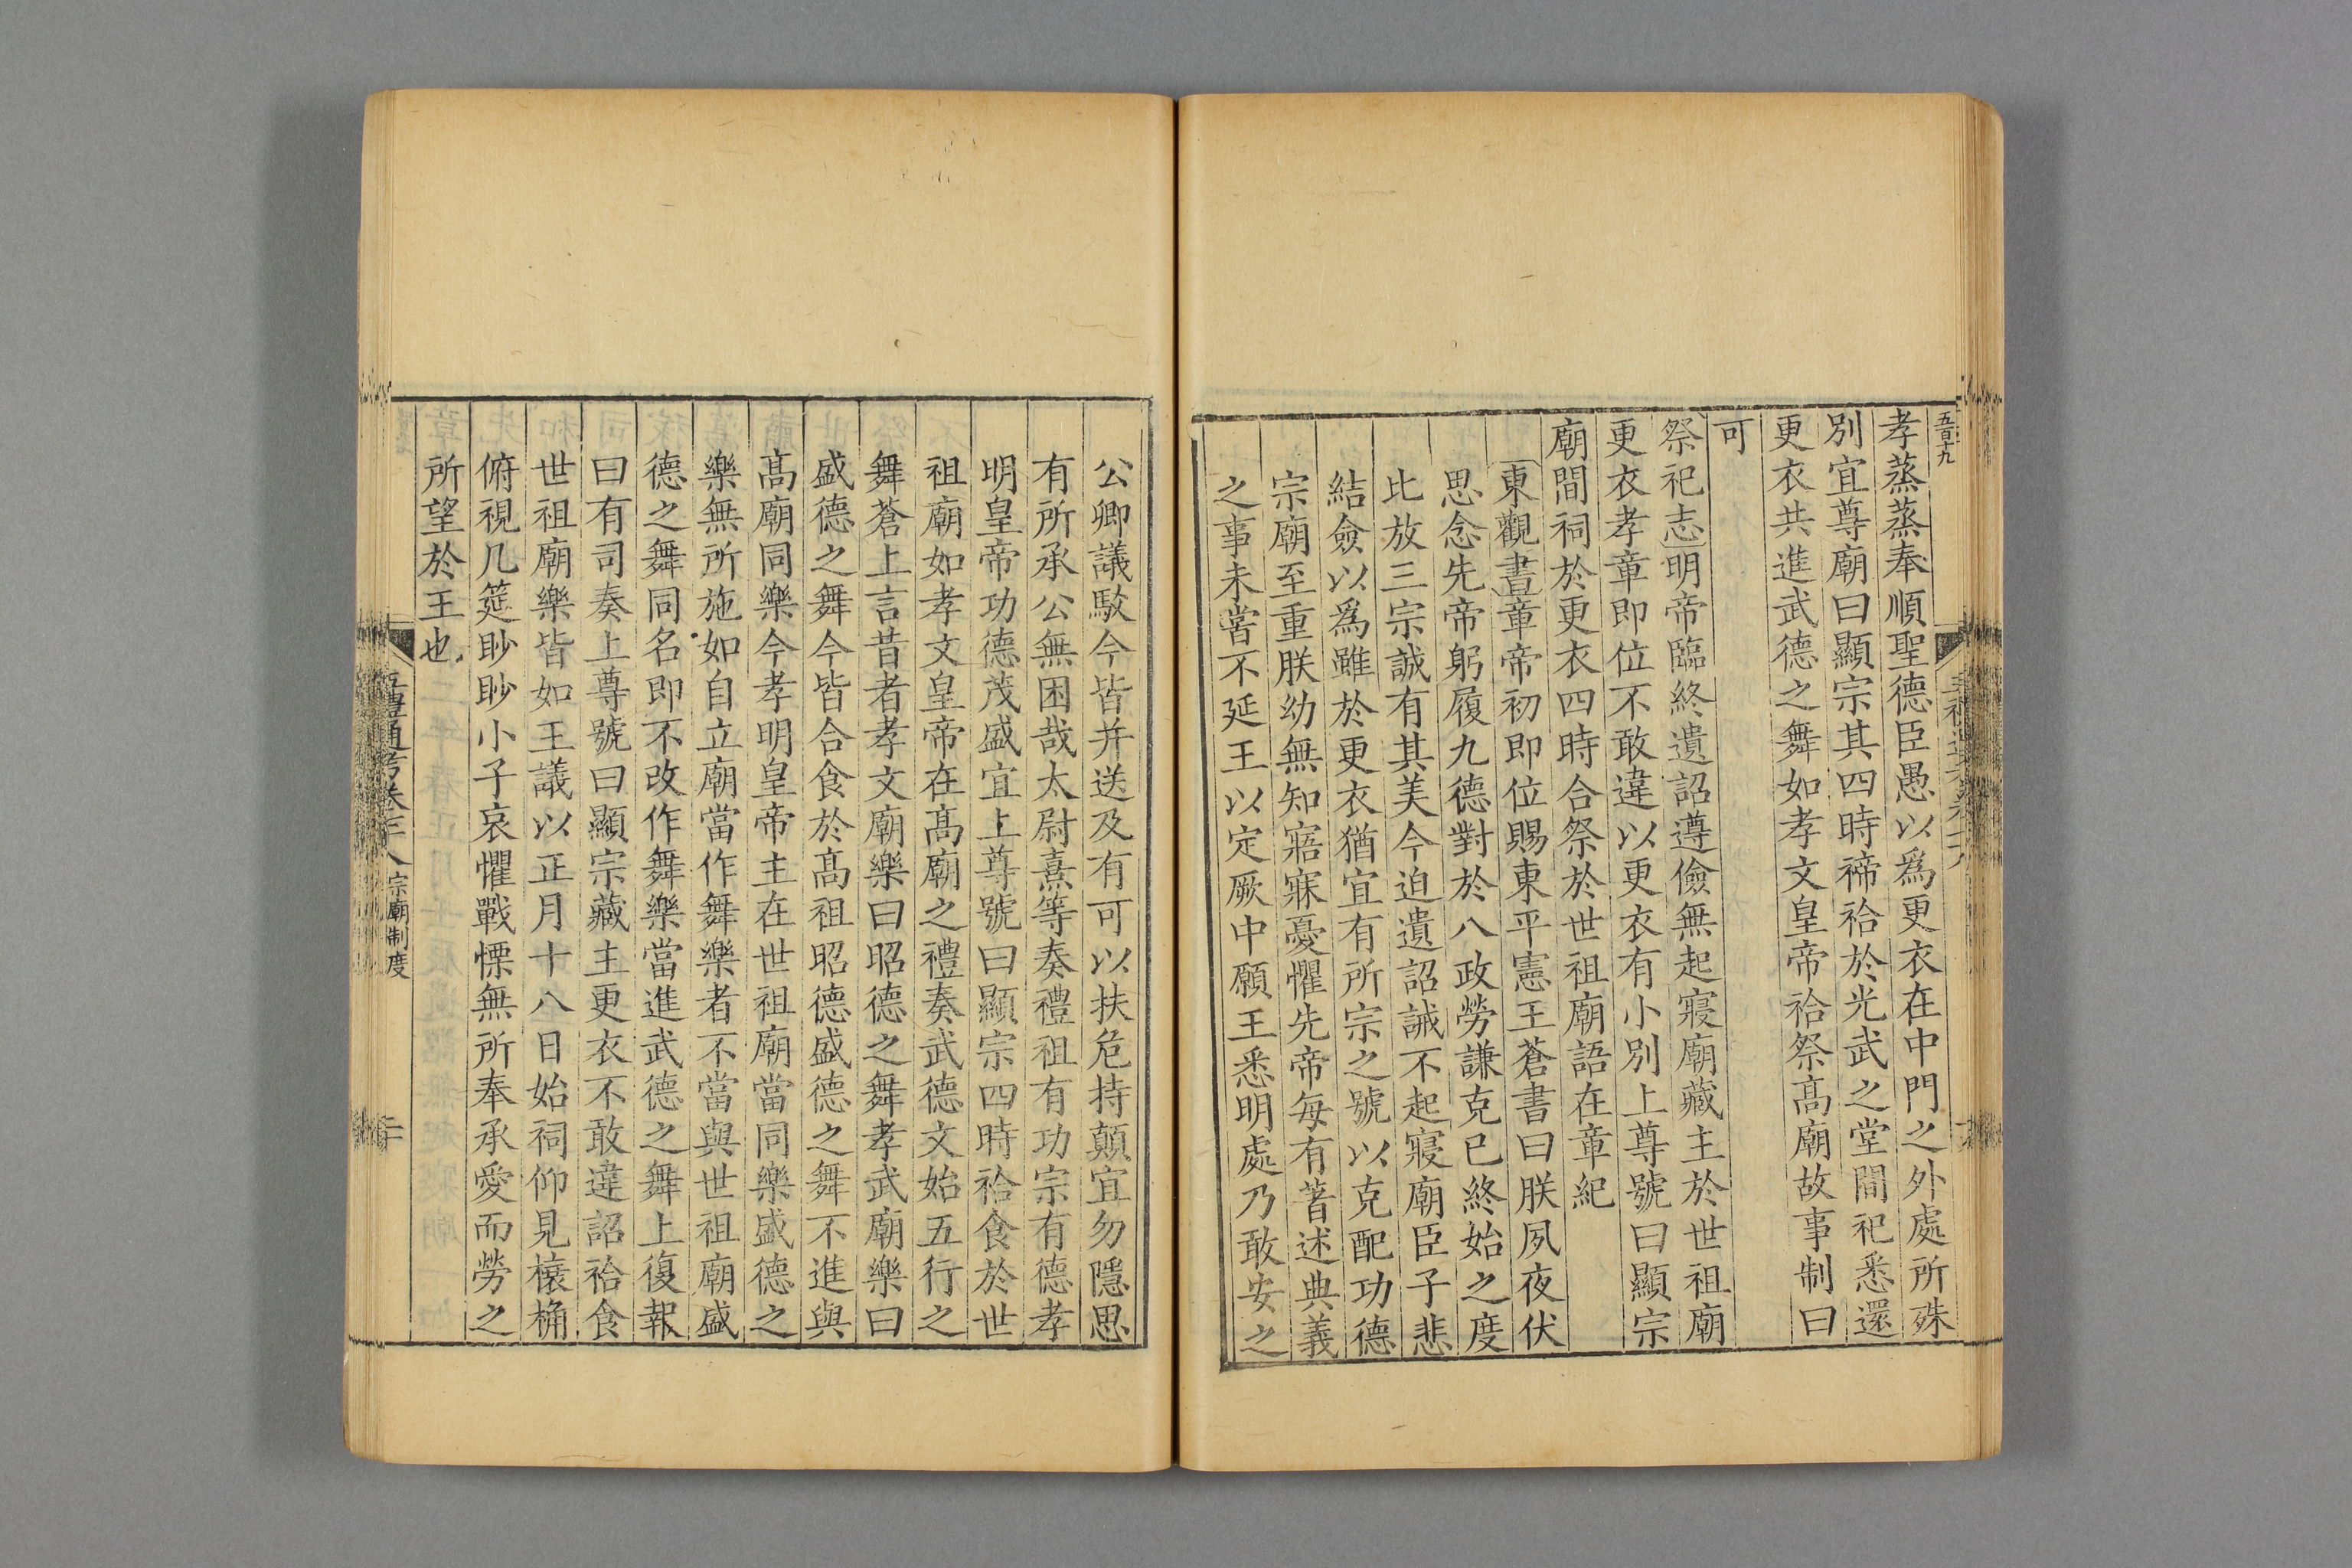 五百九
孝蒸蒸奉順聖德臣愚以爲更衣在中門之外處所殊
別宜尊廟曰顯宗其四時禘祫於光武之堂間祀悉還
更衣共進武德之舞如孝文皇帝祫祭髙廟故事制曰
可
祭祀志明帝臨終遺詔遵儉無起寢廟藏主於世祖廟
更衣孝章即位不敢違以更衣有小別上尊號曰顯宗
廟間祠於更衣四時合祭於世祖廟語在章紀
東觀書章帝初即位賜東平憲王蒼書曰朕夙夜伏
思念先帝躬履九德對於八政勞謙克已終始之度
比放三宗誠有其美今迫遺詔誡不起寢廟臣子悲
結僉以爲雖於更衣猶宜有所宗之號以克配功德
宗廟至重朕幼無知寤寐憂懼先帝每有著述典義
之事未嘗不延王以定厥中願王悉明處乃敢安之
公卿議駮今皆并送及有可以扶危持顛宜勿隱思
有所承公無困哉太尉熹等奏禮祖有功宗有德孝
明皇帝功德茂盛宜上尊號曰顯宗四時祫食於世
祖廟如孝文皇帝在髙廟之禮奏武德文始五行之
舞蒼上言昔者孝文廟樂曰昭德之舞孝武廟樂曰
盛德之舞今皆合食於髙祖昭德盛德之舞不進與
髙廟同樂今孝明皇帝主在世祖廟當同樂盛德之
樂無所施如自立廟當作舞樂者不當與世祖廟盛
德之舞同名即不改作舞樂當進武德之舞上復報
曰有司奏上尊號曰顯宗藏主更衣不敢違詔祫食
世祖廟樂皆如王議以正月十八日始祠仰見榱桷
俯視几筵眇眇小子哀懼戰慄無所奉承愛而勞之
所望於王也
五禮通考卷 宗廟制度